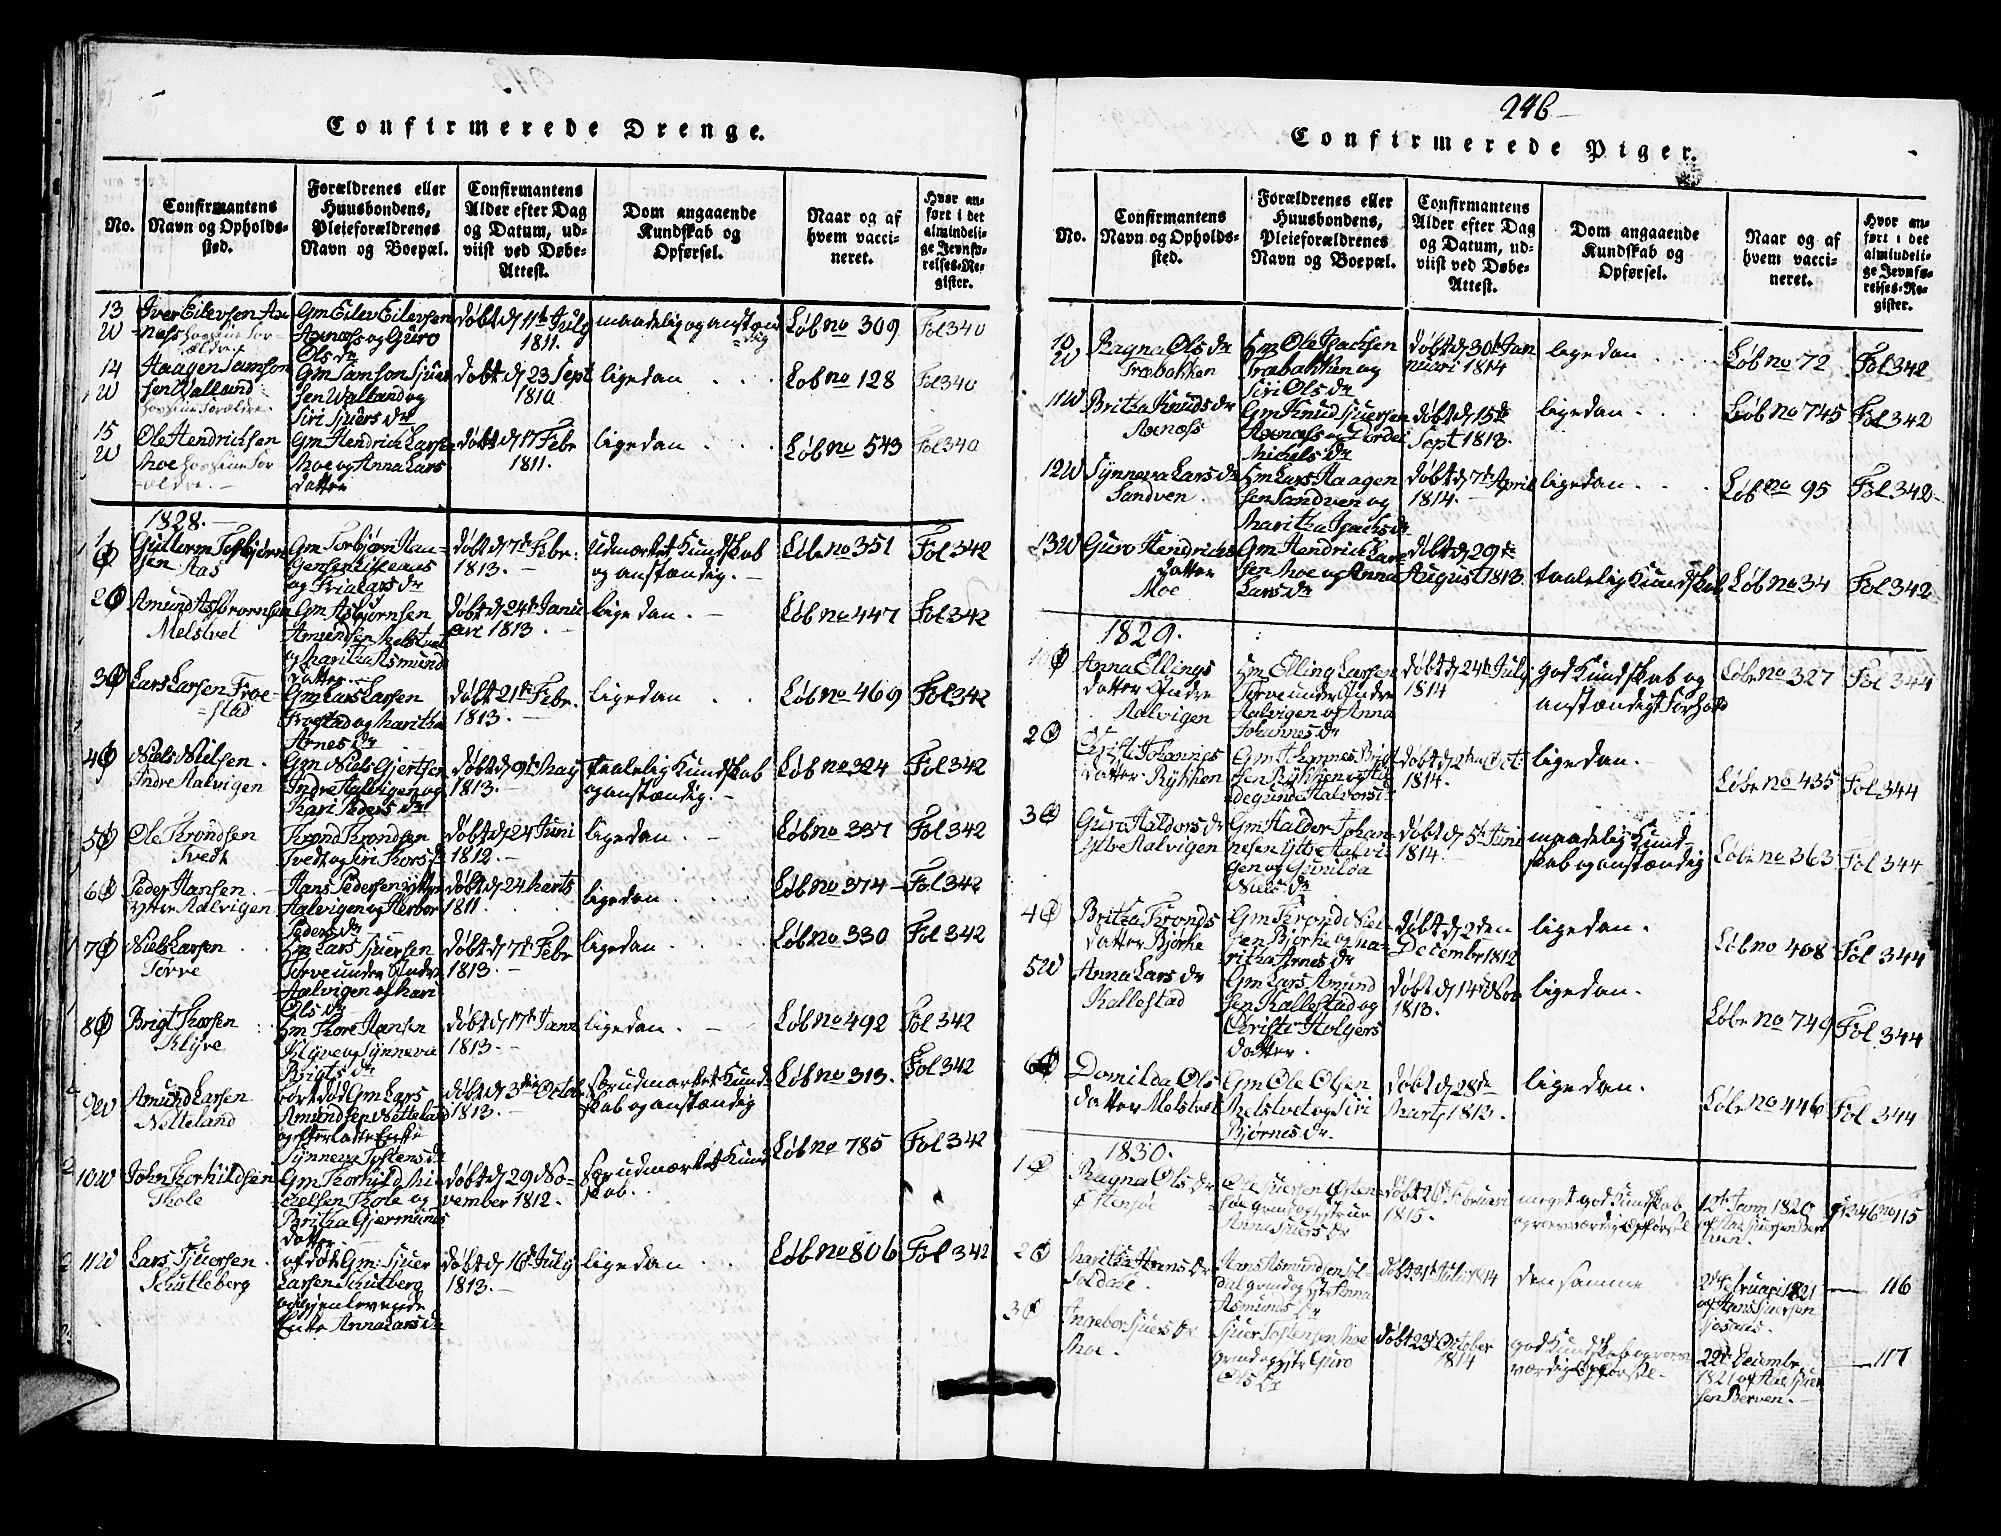 Confirmerede Drenge.
No.
Confirmantens
Navn og Opholds-
sted.
Forældrenes eller
Huusbondens,
Pleieforældrenes
Navn og Boepæl.
Confirmantens
Alder efter Dag
og Datum, ud-
viist ved Døbe-
Attest.
Dom angaaende
Kundskab og
Opførsel.
Naar og af
hvem vacci-
neret.
Hvor an-
ført i det
almindeli-
ge Jevnfø-
relses-Re-
gister.
13
W
Iver Eilevsen Ax-
næss hos sine For-
ældre.
Gm Eilev Eilevsen
Axnæss og Guro
Ols dr
døbt d 11te July
1811.
maadelig og anstæn
=dig
Løb no 309
Fol 340
14
W
Haagen Samson
sen Walland
hos sine Forældre.
Gm Samson Sjuer
sen Walland og
Siri Sjuers dr
døbt d 23 Sept
1810
ligedan
Løb no 128
Fol 340
15
W
Ole Hendrichsen
Moe hos sine For
ældre. -
Gm Hendrich Larsen
Moe og Anna Lars
datter
døbt d 17 Febr
1811.
ligedan
Løb no 543
Fol 340
1828. -
1
Guttorm Torbjørn
sen Aas
Gm Torbjørn Han-
sen Aas
og Lars dr
døbt d 7de Febr.
1813. -
udmærket Kundskab
og anstændig. -
Løb no 351
Fol 342
2
Amund Asbjørnsen
Melstvet
Gm Asbjørnsen
Amundsen Melstvet
og Maritha Asmund
datter
døbt d 24de Janu
ari 1813.
ligedan. -
Løb no 447
Fol 342
3
Lars Larsen Froe-
=stad
Gm Lars Larsen
Froestad og Maritha
Arnes dr
døbt 21de Febr.
1813. -
ligedan
Løb no 469
Fol 342
4
Niels Nielsen
Indre Aalvigen
Gm Niels Gjertsen
Indre Aalvigen og
Kari Peders dr
døbt d 9de May
1813. -
taalelig Kundskab
og anstændig. -
Løb no 324
Fol 342
5
Ole Throndsen
Tvedt
Thrond Throndsen
Tvedt og Siri Thors dr
døbt d 24 Juni
1812. -
ligedan.
Løb no 337
Fol 342
6
Peder Hansen
Ytter Aalvigen
Hans Pedersen Ytter
Aalvigen og Herbor
Peders dr
døbt d 24 Marts
1811.
ligedan
Løb no 374 -
Fol 342
7
Niels Larsen
Torve
Gm Lars Sjuersen
Torve under Indre
Aalvigen og Mari
Ols dr
døbt d 7de Febr
1813. -
ligedan
Løb no 330
Fol 342
8
Brigt Thorsen
Klyve
Gm Thore Hansen
Klyve og Synneva
Brigts dr
døbt d 17de Janu
1813. -
ligedan. -
Løb no 492
Fol 342
9 W
Amund Larsen
Netteland
bortdød Gm Lars
Amundsen Netteland
og efterladte Enke
Synneva Tostens dr
døbt d 3die Octob
1813.
særudmærket Kund
skab og anstændig
Løb no 313.
Fol 342
10 W
John Thorkildsen
Thole
Gm Thorkild Mi-
kelsen Thole og
Britha Gjermunds
datter
døbt d 29 No-
vember 1812. -
særudmærket Kund
skab.
Løb no 785
Fol 342
11 W
Lars Sjuersen
Schutleberg
afdøde Gm: Sjuer
Larsen Schutberg
og gjenlevende
Enke Anna Lars dr
døbt d 16de July
1813. -
ligedan
Løb no 806
Fol 342
246 -
Confirmerede Piger.
No.
Confirmantens
Navn og Opholds-
sted.
Forældrenes eller
Huusbondens,
Pleieforældrenes
Navn og Boepæl.
Confirmantens
Alder efter Dag
og Datum, ud-
viist ved Døbe-
Attest.
Dom angaaende
Kundskab og
Opførsel.
Naar og af
hvem vacci-
neret.
Hvor an-
ført i det
almindeli-
ge Jevnfø-
relses-Re-
gister.
10
W
Ragna Ols dr
Træbakken
Hm Ole Isachsen
Træbakken og
Siri Ols dr
døbt d 30te Jan
nuari 1814
ligedan
Løb no 72
Fol 342
11 W
Britha Knuds dr
Axnæss
Gm Knud Sjuersen
Axnæss og Dordei
Michels dr
døbt d 15de
Sept 1813.
ligedan
Løb no 745
Fol 342
12 W
Synneva Lars dr
Sandven
Hm Lars Haagen
sen Sandven og
Maritha Isachs dr
døbt d 7de April
1814.
ligedan
Løb no 95
Fol 342 -
13 W
Guro Hendrichs
datter
Moe
Gm Hendrich Lar
sen Moe og Anna
Lars dr
døbt d 29de
August 1813.
taalelig Kundskab
Løb no 34
Fol 342
1829.
1
Anna Ellings
datter Indre
Aalvigen
Hm Elling Larsen
Torve under Indre
Aalvigen og Anna
Johannes dr
døbt d 24de July
1814
god Kundskab og
anstændigt Forhold
Løb no 327
Fol 344
2
Christi Johannes
datter Rykken
Gm Johannes Brigt
sen Rykken og Hil
degunde Halvors dr
døbt d 2den Oct
1814.
ligedan. -
Løb no 435
Fol 344
3
Guro Haldors dr
Ytre Aalvigen
Gm Haldor Johan
nesen Ytre Aalvi-
gen og Gunilda
Niels dr
døbt d 5te Juni
1814.
maadelig Kund-
skab og anstændig
Løb no 363
Fol 344
4
Britha Thronds
datter Bjørke
Gm Thrond Niel-
sen Bjørke og Ma-
ritha Arnes dr
døbt d 2den
Decembr 1812
ligedan.
Løb no 408
Fol 344
5 W
Anna Lars dr
Kallestad
Gm Lars Amund
sen Kallestad og
Christi Holgers
datter.
døbt d 14de Nov
1813.
ligedan.
Løb no 749
Fol 344
6
Domilda Ols
datter Melstvet
Gm Ole Olsen
Melstvet og Siri
Bjørnes dr.
døbt d 28de
Marts 1813.
ligedan.
Løb no 446
Fol 344
1830.
1
Ragna Ols dr
Østensøe
Ole Sjuersen Østen-
søe grmd og hstrue
Anna Sjuers dr
døbt 26 Februari
1815.
meget god Kundskab
og roesværdig Opførsel
12te Jann 1820
af Aad Sjuersen Ber
ven.
246 no 115
2
Maritha Hans dr
Soldahl.
Hans Asmundsen Sol-
dal grmd og hstr Anna
Asmunds dr
døbt 31te Juli 1814
den samme
2de Februari 1821
af Hans Sjuersen
- 116
3
Ingebor Sjuers dr
Moe.
Sjuer Tostensen Moe
grmd og hstr Guro
Ols dr
døbt 23de October
1814
god Kundskab og roes-
værdig Opførsel -
22de Decembr
1821 af Aad Sjuer
sen Berven. -
- 117